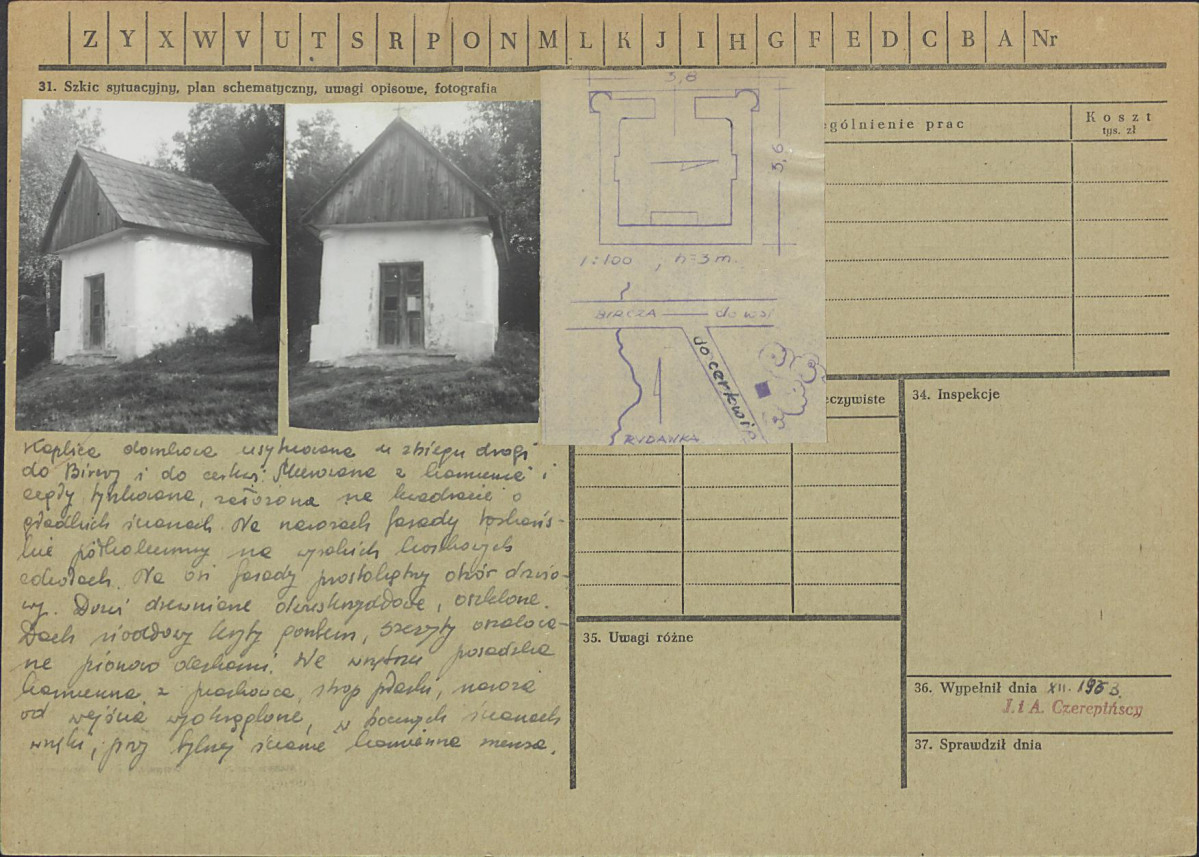 Z Y X W V U T S R P O N M L K J I H G F E D C B A Nr
31. Szkic sytuacyjny, plan schematyczny, uwagi opisowe, fotografia
3,8
5,6
1:100 , h=3m.
BIRCZA do wsi
do cerkwi
RUDAWKA
ególnienie prac
Koszt
tys. zł
eczywiste
34. Inspekcje
Kaplica domkowa usytuowana u zbiegu drogi
do Birczy i do cerkwi. Murowana z kamienia i
cegły tynkowana, założona na kwadracie o
gładkich ścianach. Na narożach fasady toskańs-
kie półkolumny na wysokich cokołach
cokołach. Na osi fasady prostokątny otwór drzwio-
wy. Drzwi drewniane dwuskrzydłowe, oszklone.
Dach siodłowy kryty gontem, szczyty oszalowa-
ne pionowo deskami. We wnętrzu posadzka
kamienna z piaskowca, strop płaski, naroża
od wejścia wyokrąglone, w bocznych ścianach
wnęki, przy tylnej ścianie kamienna mensa.
35. Uwagi różne
36. Wypełnił dnia XII. 1958.
J. i A. Czerepińscy
37. Sprawdził dnia